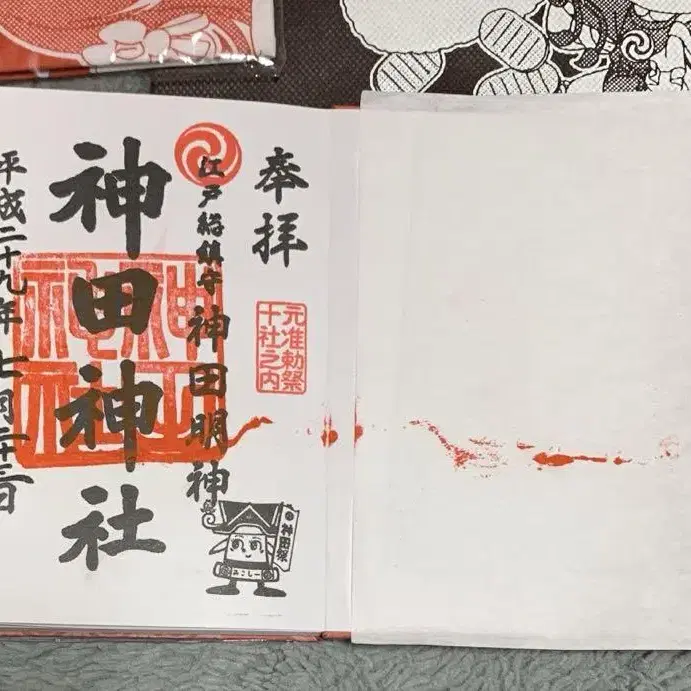 奉拝
元准勅祭
十社之内
江戸総鎮守 神田明神
神田神社
平成二十九年七月二十三日
神田祭
みこしー